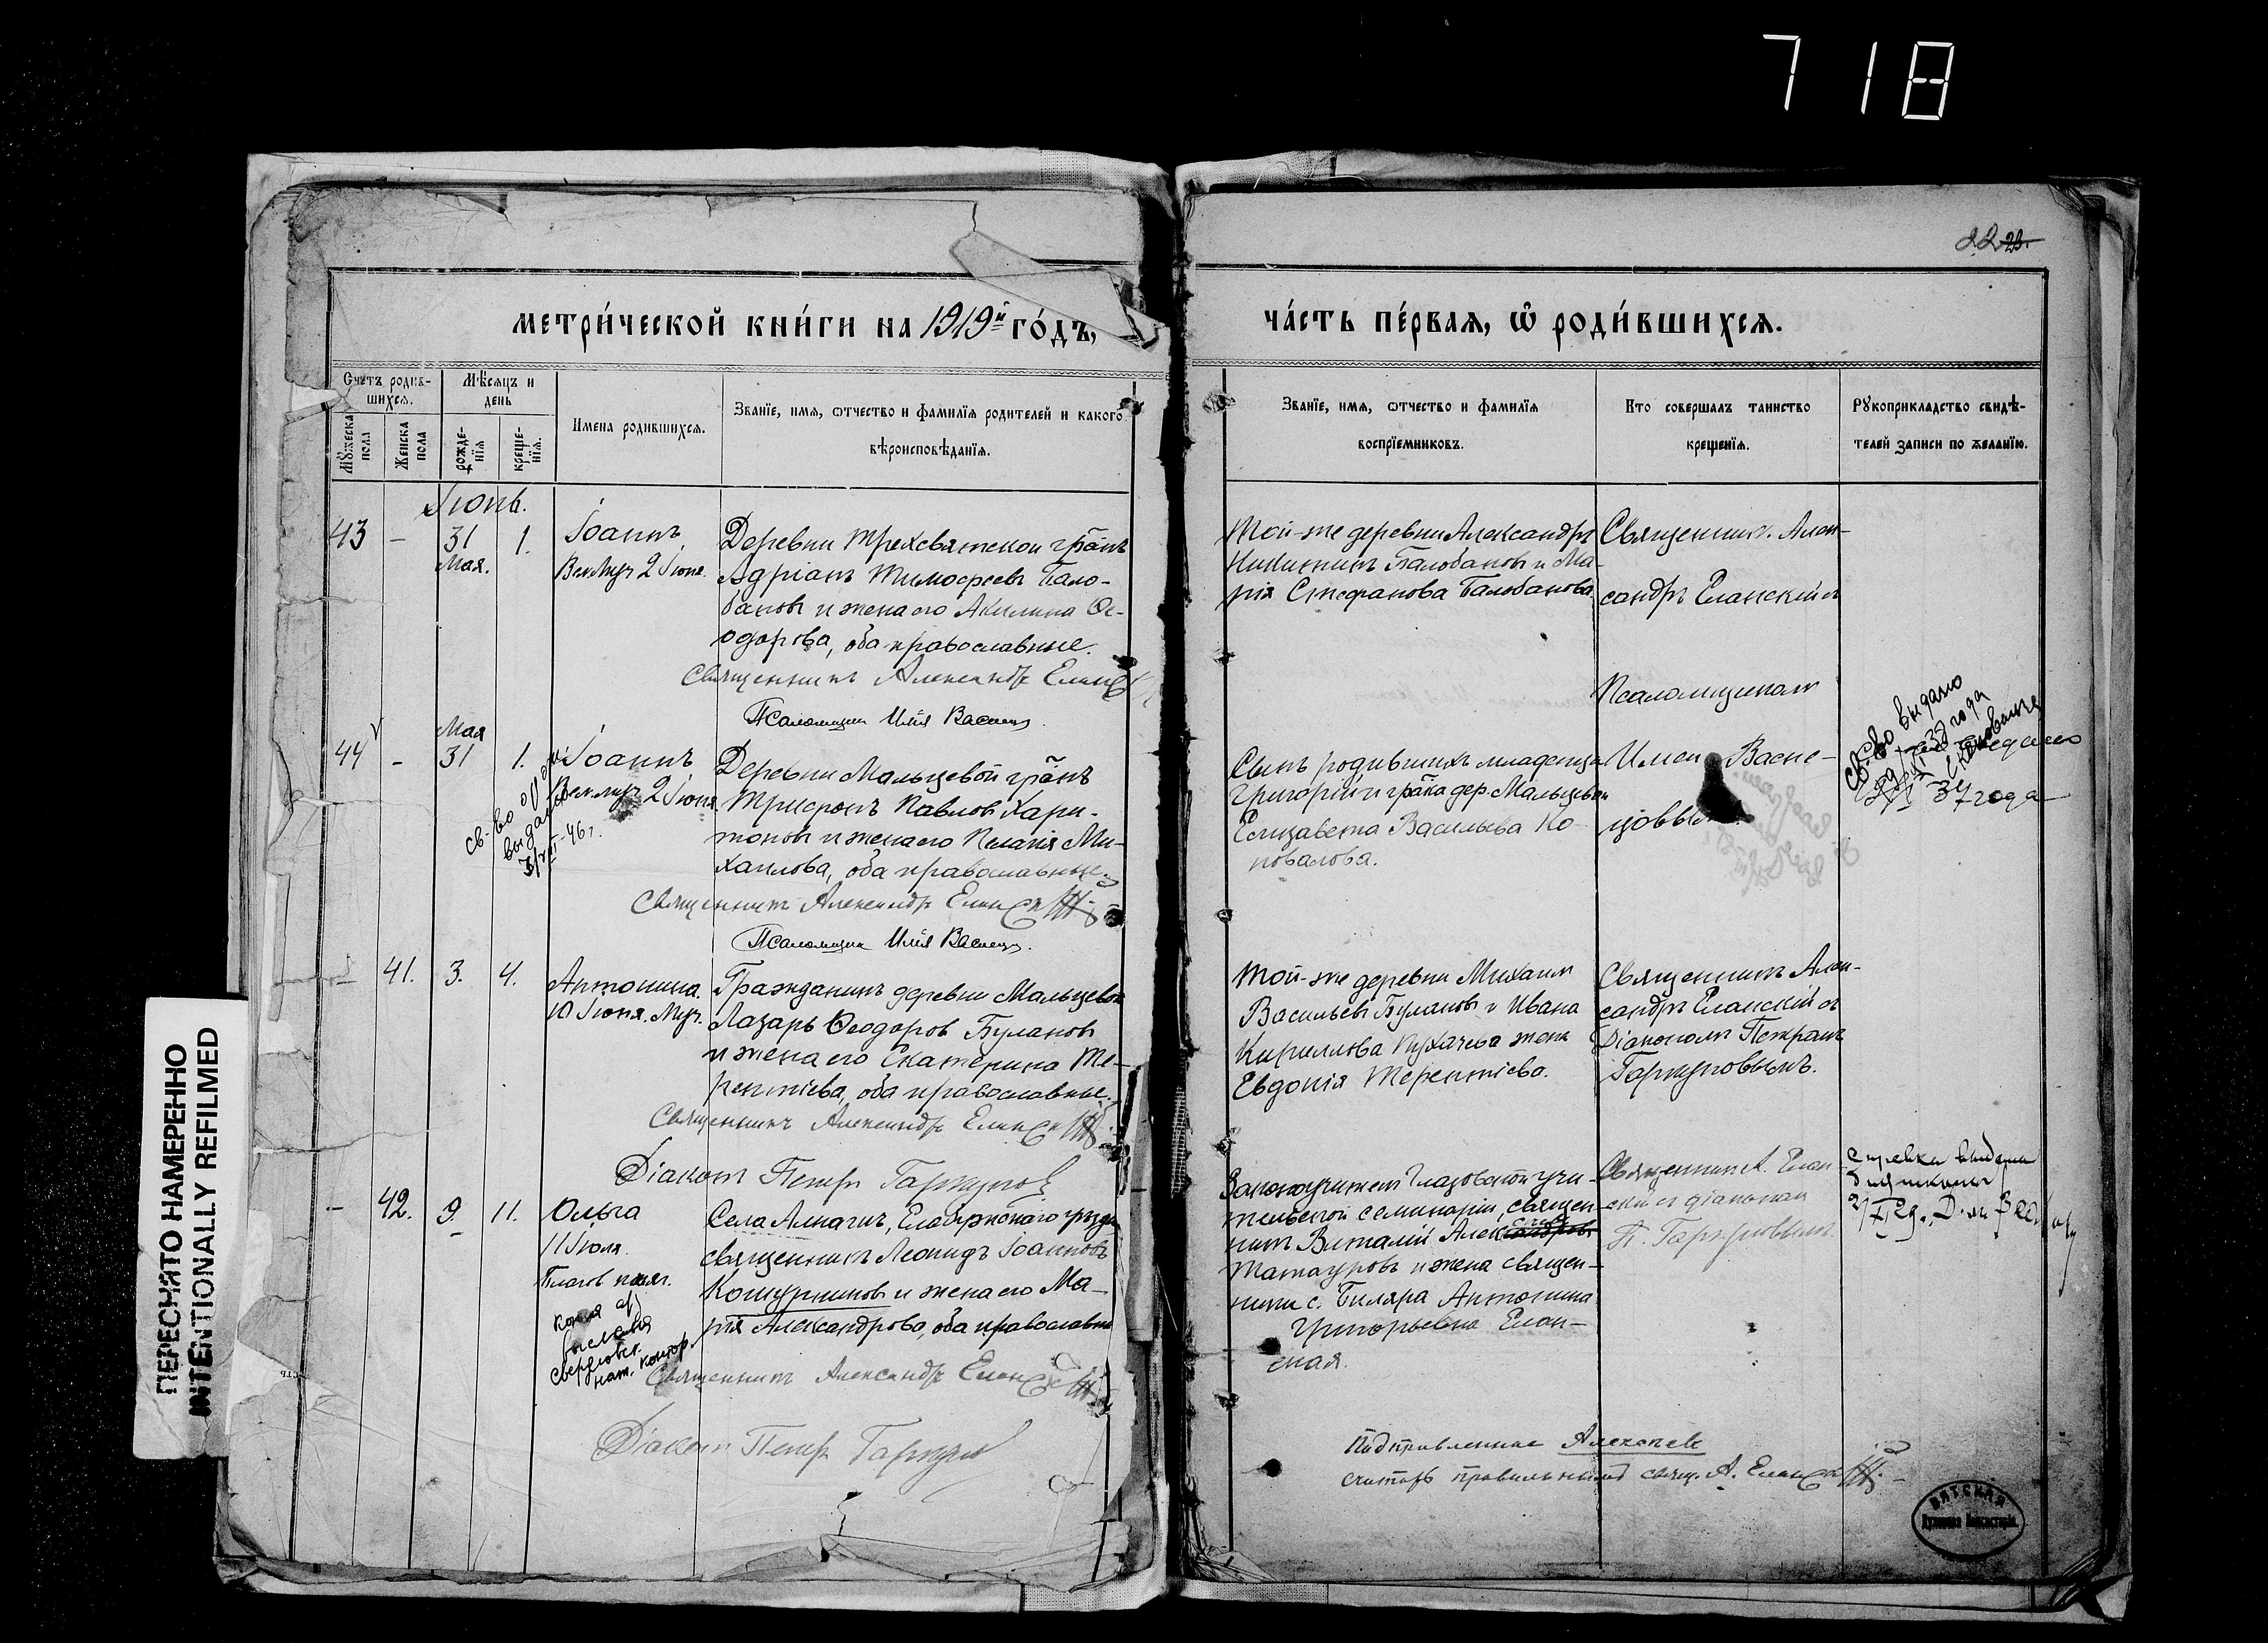 718
22 23.
метри́ческой кни́ги на 1919й го́дъ,
ча́сть пе́рвая, ѽ роди́вшихся.
Счетъ родив-
шихся.
Мѣсяцъ и
день
Мꙋжеска
пола
Женска
пола
рожде-
нїя
креще-
нїя.
Имена родившихся.
Званїе, имя, ѡтчество и фамилїя родителей и какого
вѣроисповѣданїя.
Званїе, имя, ѡтчество и фамилїя
воспрїемниковъ.
Кто совершалъ таинство
крещенїя.
Рꙋкоприкладство свидѣ-
телей записи по желанїю.
Іюнь.
43 – 31 1.
Мая.
Іоаннъ
2 Іюня.
Деревни Трехсвятской гр̃анъ
Адріанъ Тимофеевъ Бало-
бановъ и жена его Акилина Ѳе-
одорова, оба православные.
Священникъ Александръ Еланск
Псаломщикъ Илія Васнец
Той-же деревни Александръ
Никитинъ Балобановъ и Ма-
рія Стефанова Балобанова
Священник. Алек-
сандръ Еланскій съ
Псаломщикомъ
Мая
44 – 31 1.
Іоаннъ
2 Іюня
св-во о
выдано
46 г.
Деревни Мальцевой гр̃анъ
Трифонъ Павловъ Хари-
тоновъ и жена его Пелагія Ми-
хаилова, оба православные.
Священникъ Александръ Еланск
Псаломщик Илія Васнец
Сынъ родившихъ младенца
Григорій и гр̃ка дер. Мальцевой
Елизавета Васильева Ко-
новалова.
Васне-
цовы
св-во выдано
37 года
37 года
– 41. 3. 4.
Антонина.
10 Іюня. Муч.
Гражданинъ деревни Мальцевой
Лазарь Ѳеодоровъ Булановъ
и жена его Екатерина Те-
рентіева, оба православные.
Священникъ Александръ Еланск
Діаконъ Петръ Гаркунов
Той-же деревни Михаилъ
Васильевъ Булановъ и Ивана
Кириллова Пухачева жена
Евдокія Терентіева.
Священникъ Алек-
сандръ Еланскій съ
Діакономъ Петромъ
Гаркуновымъ.
– 42. 9. 11.
Ольга
11 Іюля.
копія
выслана
свердловск.
нат. контор.
Села Алнашъ, Елабужскаго уѣзда
священникъ Леонидъ Іоанновъ
Кошурниковъ и жена его Ма-
рія Александрова, оба православные
Священникъ Александръ Еланск
Діаконъ Петръ Гаркунов
Законоучитель Глазовской учи-
тельской семинаріи, священ-
никъ Виталій Алек
Татауровъ и жена священ-
ника с. Биляра Антонина
Григорьевна Елан-
ская.
Священник А. Елан-
скій съ діакономъ
П. Гаркуновымъ
справка выдана
Подправленное Алексѣевъ
считать правильнымъ свящ. А. Еланск
ВЯТСКАЯ
Духовная Консисторія
ПЕРЕСНЯТО НАМЕРЕННО
INTENTIONALLY REFILMED